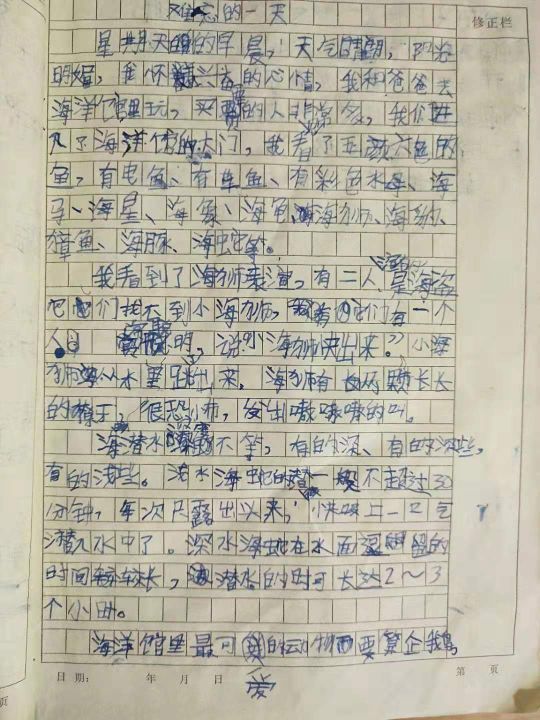 难忘的一天
修正栏
星期天的早晨,天气晴朗,阳光
明媚,我怀着兴奋的心情,我和爸爸去
海洋馆里玩,买票的人非常多,我们进
入了海洋馆的大门,我看了五颜六色的
鱼,有电鱼、有鱼、有彩色水母、海
马、海星、海象、海龟、海狮、海豹、
章鱼、海豚、海蛇等。
我看到了海狮表演,有二人是海盗
它们找不到小海狮,它们有一个
人明,说:“小海狮快出来。”小海
狮从水里跳出来,海狮有长两颗长长
的牙,很恐怖,发出嗷嗷嗷的叫。
海潜水不等,有的深、有的深些,
有的浅些。浅水海蛇的潜一般不超过30
分钟,每次只露出头来,快吸上一口气
潜入水中了。深水海蛇在水面逗留的
时间较长,潜水的时可长达2~3
个小时。
海洋馆里最可爱的动物要算企鹅
日期: 年 月 日
第 页
页